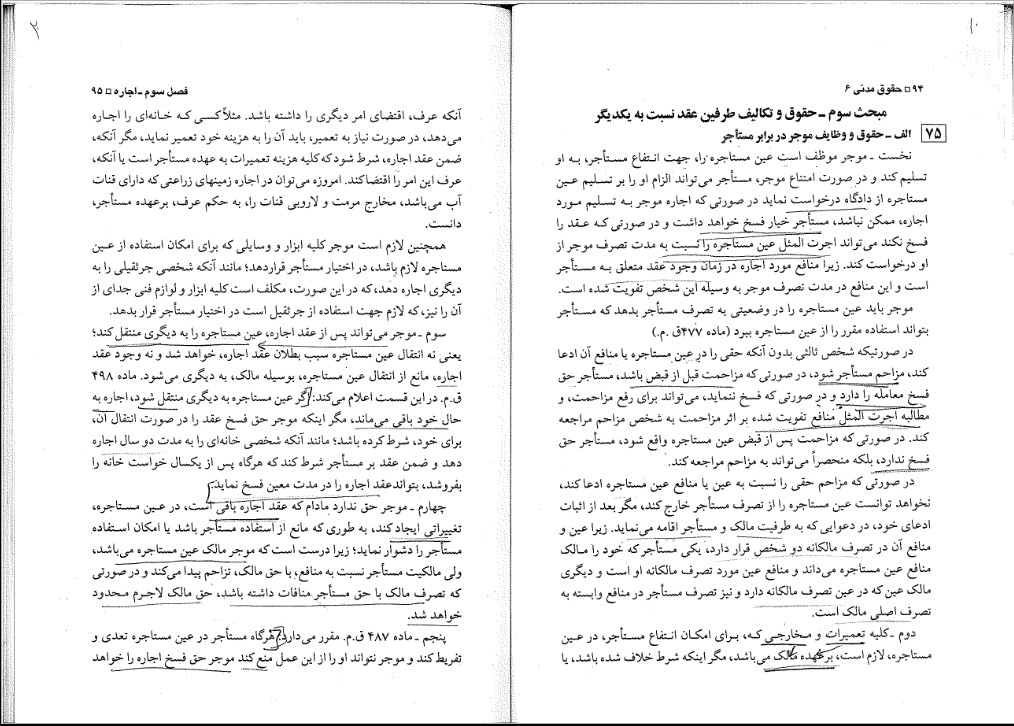 ۱۰
۹۴ □ حقوق مدنی ۶
مبحث سوم ـ حقوق و تکالیف طرفین عقد نسبت به یکدیگر
۷۵
الف ـ حقوق و وظایف موجر در برابر مستأجر
نخست ـ موجر موظف است عین مستاجره را، جهت انتفاع مستأجر، به او
تسلیم کند و در صورت امتناع موجر، مستأجر می‌تواند الزام او را بر تسلیم عین
مستاجره از دادگاه درخواست نماید در صورتی که اجاره موجر به تسلیم مورد
اجاره، ممکن نباشد، مستأجر خیار فسخ خواهد داشت و در صورتی که عقد را
فسخ نکند می‌تواند اجرت المثل عین مستاجره را نسبت به مدت تصرف موجر از
او درخواست کند. زیرا منافع مورد اجاره در زمان وجود عقد متعلق به مستأجر
است و این منافع در مدت تصرف موجر به وسیله این شخص تفویت شده است.
موجر باید عین مستاجره را در وضعیتی به تصرف مستأجر بدهد که مستأجر
بتواند استفاده مقرر را از عین مستاجره ببرد (ماده ۴۷۷ق .م.)
در صورتیکه شخص ثالثی بدون آنکه حقی را در عین مستاجره یا منافع آن ادعا
کند، مزاحم مستأجر شود، در صورتی که مزاحمت قبل از قبض باشد، مستأجر حق
فسخ معامله را دارد و در صورتی که فسخ ننماید، می‌تواند برای رفع مزاحمت، و
مطالبه اجرت المثل منافع تفویت شده بر اثر مزاحمت به شخص مزاحم مراجعه
کند. در صورتی که مزاحمت پس از قبض عین مستاجره واقع شود، مستأجر حق
فسخ ندارد، بلکه منحصراً می‌تواند به مزاحم مراجعه کند.
در صورتی که مزاحم حقی را نسبت به عین یا منافع عین مستاجره ادعا کند،
نخواهد توانست عین مستاجره را از تصرف مستأجر خارج کند، مگر بعد از اثبات
ادعای خود، در دعوایی که به طرفیت مالک و مستأجر اقامه می‌نماید. زیرا عین و
منافع آن در تصرف مالکانه دو شخص قرار دارد، یکی مستأجر که خود را مالک
منافع عین مستاجره می‌داند و منافع عین مورد تصرف مالکانه او است و دیگری
مالک عین که در عین تصرف مالکانه دارد و نیز تصرف مستأجر در منافع وابسته به
تصرف اصلی مالک است.
دوم ـ کلیه تعمیرات و مخارجی که، برای امکان انتفاع مستأجر، در عین
مستاجره، لازم است، برعهده مالک می‌باشد، مگر اینکه شرط خلاف شده باشد، یا
۲
فصل سوم ـ اجاره □ ۹۵
آنکه عرف، اقتضای امر دیگری را داشته باشد. مثلاً کسی که خانه‌ای را اجاره
می‌دهد، در صورت نیاز به تعمیر، باید آن را به هزینه خود تعمیر نماید، مگر آنکه،
ضمن عقد اجاره، شرط شود که کلیه هزینه تعمیرات به عهده مستأجر است یا آنکه،
عرف این امر را اقتضا کند. امروزه می‌توان در اجاره زمینهای زراعتی که دارای قنات
آب می‌باشد، مخارج مرمت و لاروبی قنات را، به حکم عرف، برعهده مستأجر،
دانست.
همچنین لازم است موجر کلیه ابزار و وسایلی که برای امکان استفاده از عین
مستاجره لازم باشد، در اختیار مستأجر قراردهد؛ مانند آنکه شخصی جرثقیلی را به
دیگری اجاره دهد، که در این صورت، مکلف است کلیه ابزار و لوازم فنی جدای از
آن را نیز، که لازم جهت استفاده از جرثقیل است در اختیار مستأجر قرار بدهد.
سوم ـ موجر می‌تواند پس از عقد اجاره، عین مستاجره را به دیگری منتقل کند؛
یعنی نه انتقال عین مستاجره سبب بطلان عقد اجاره، خواهد شد و نه وجود عقد
اجاره، مانع از انتقال عین مستاجره، بوسیله مالک، به دیگری می‌شود. ماده ۴۹۸
ق.م. در این قسمت اعلام می‌کند: اگر عین مستاجره به دیگری منتقل شود، اجاره به
حال خود باقی می‌ماند، مگر اینکه موجر حق فسخ عقد را در صورت انتقال آن،
برای خود، شرط کرده باشد؛ مانند آنکه شخصی خانه‌ای را به مدت دو سال اجاره
دهد و ضمن عقد بر مستأجر شرط کند که هرگاه پس از یکسال خواست خانه را
بفروشد، بتواند عقد اجاره را در مدت معین فسخ نماید.
چهارم ـ موجر حق ندارد مادام که عقد اجاره باقی است، در عین مستاجره،
تغییراتی ایجاد کند، به طوری که مانع از استفاده مستأجر باشد یا امکان استفاده
مستأجر را دشوار نماید؛ زیرا درست است که موجر مالک عین مستاجره می‌باشد،
ولی مالکیت مستأجر نسبت به منافع، با حق مالک، تزاحم پیدا می‌کند و در صورتی
که تصرف مالک با حق مستأجر منافات داشته باشد، حق مالک لاجرم محدود
خواهد شد.
پنجم ـ ماده ۴۸۷ ق.م. مقرر می‌دارد: هرگاه مستأجر در عین مستاجره تعدی و
تفریط کند و موجر نتواند او را از این عمل منع کند موجر حق فسخ اجاره را خواهد